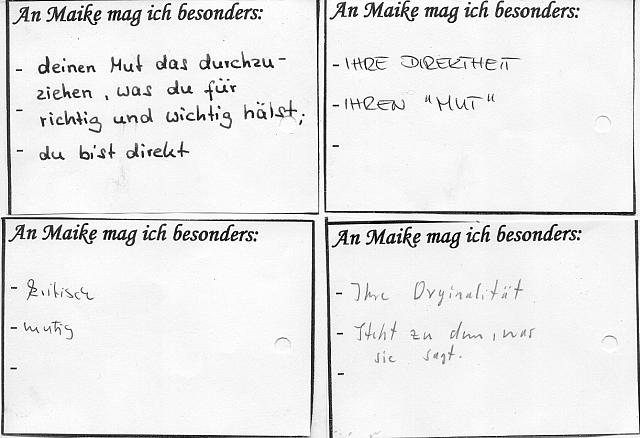 An Maike mag ich besonders:
- deinen Mut das durchzu-
ziehen, was du für
- richtig und wichtig hälst;
- du bist direkt
An Maike mag ich besonders:
- IHRE DIREKTHEIT
- IHREN "MUT"
-
An Maike mag ich besonders:
- kritisch
- mutig
-
An Maike mag ich besonders:
- Ihre Orginalität
- Steht zu dem, was
sie sagt.
-